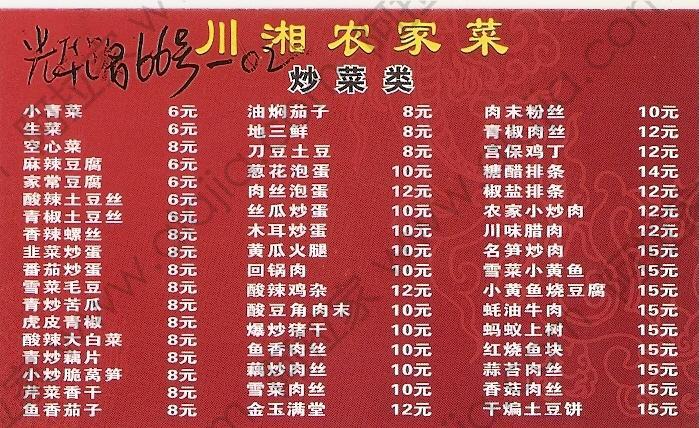 川湘农家菜
光华路66号-02
炒菜类
小青菜 6元
生菜 6元
空心菜 8元
麻辣豆腐 6元
家常豆腐 6元
酸辣土豆丝 6元
青椒土豆丝 6元
香辣螺丝 8元
韭菜炒蛋 8元
番茄炒蛋 8元
雪菜毛豆 8元
青炒苦瓜 8元
虎皮青椒 8元
酸辣大白菜 8元
青炒藕片 8元
小炒脆莴笋 8元
芹菜香干 8元
鱼香茄子 8元
油焖茄子 8元
地三鲜 8元
刀豆土豆 8元
葱花泡蛋 10元
肉丝泡蛋 12元
丝瓜炒蛋 10元
木耳炒蛋 10元
黄瓜火腿 10元
回锅肉 10元
酸辣鸡杂 12元
酸豆角肉末 10元
爆炒猪干 10元
鱼香肉丝 10元
藕炒肉丝 10元
雪菜肉丝 10元
金玉满堂 12元
肉末粉丝 10元
青椒肉丝 12元
宫保鸡丁 12元
糖醋排条 14元
椒盐排条 12元
农家小炒肉 12元
川味腊肉 12元
名笋炒肉 15元
雪菜小黄鱼 15元
小黄鱼烧豆腐 15元
蚝油牛肉 15元
蚂蚁上树 15元
红烧鱼块 15元
蒜苔肉丝 15元
香菇肉丝 15元
干煸土豆饼 15元